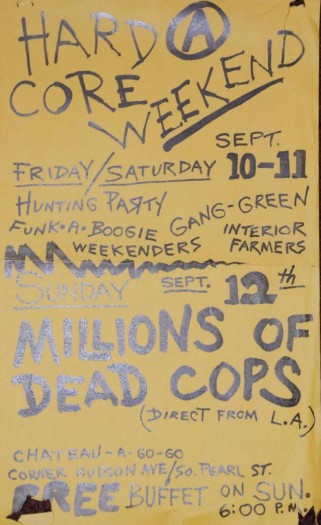 HARD Ⓐ
CORE WEEKEND
SEPT.
FRIDAY/SATURDAY 10-11
HUNTING PARTY GANG-GREEN
FUNK·A·BOOGIE INTERIOR
WEEKENDERS FARMERS
SUNDAY SEPT. 12th
MILLIONS OF
DEAD COPS
(DIRECT FROM L.A.)
CHATEAU-A-GO-GO
CORNER HUDSON AVE/SO. PEARL ST.
FREE BUFFET ON SUN.
6:00 P.M.